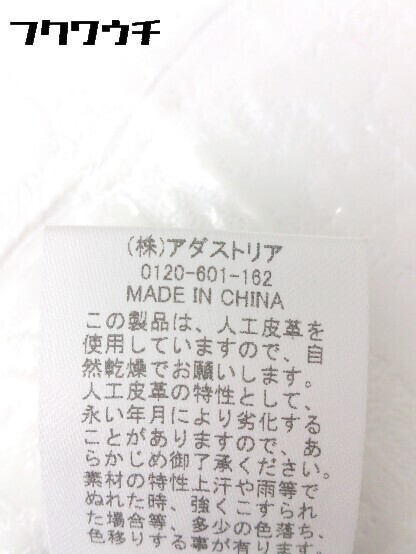 フクワウチ
(株)アダストリア
0120-601-162
MADE IN CHINA
この製品は、人工皮革を
使用していますので、自
然乾燥でお願いします。
人工皮革の特性として、
永い年月により劣化する
ことがありますので、あ
らかじめ御了承ください。
素材の特性上汗や雨等で
ぬれた時、強くこすられ
た場合等、多少の色落ち、
色移りする事が有ります